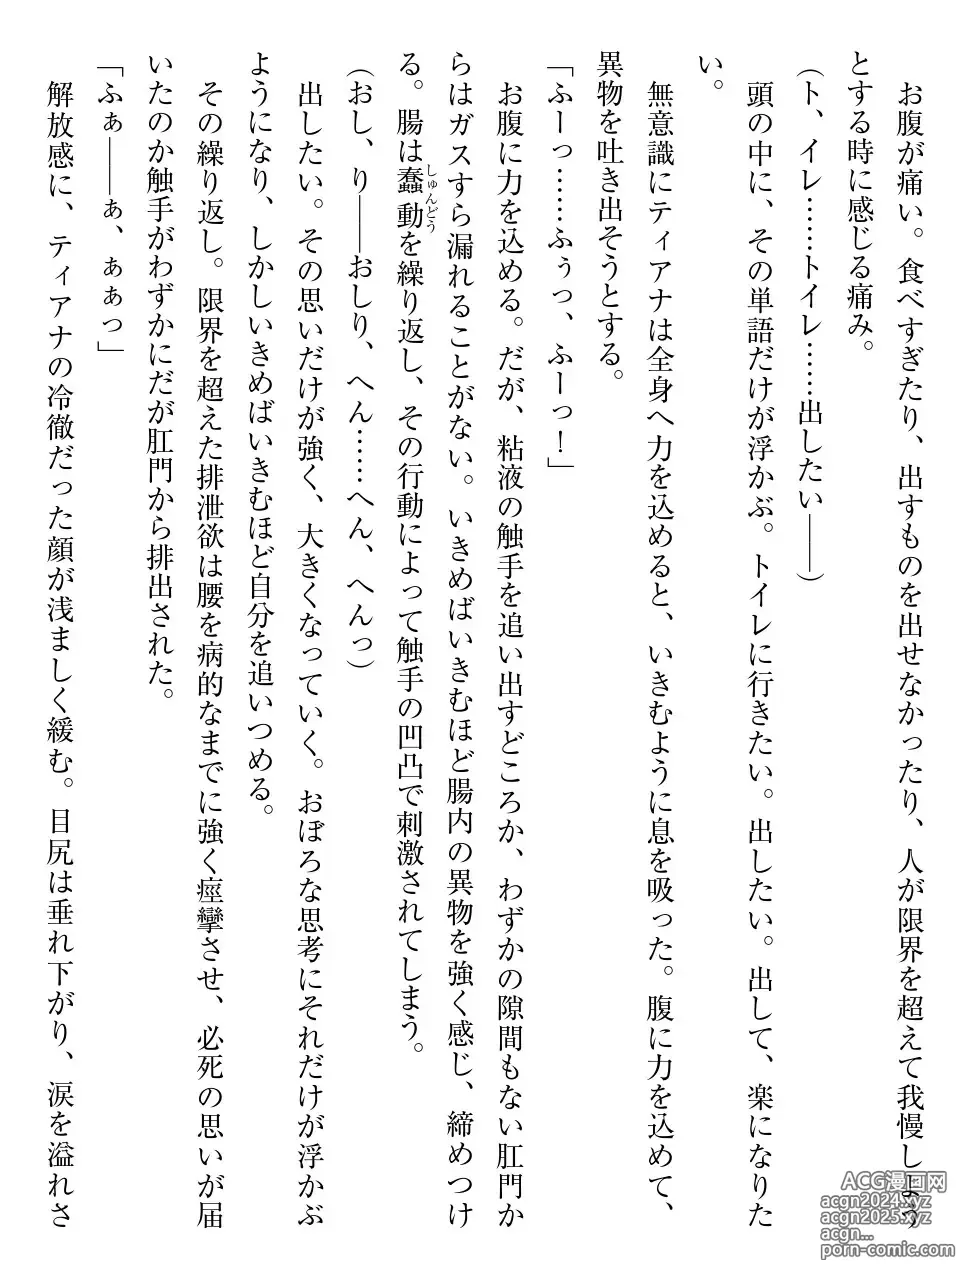 お腹が痛い。食べすぎたり、出すものを出せなかったり、人が限界を超えて我慢しよう
とする時に感じる痛み。
(ト、イレ……トイレ……出したい――)
頭の中に、その単語だけが浮かぶ。トイレに行きたい。出したい。出して、楽になりた
い。
無意識にティアナは全身へ力を込めると、いきむように息を吸った。腹に力を込めて、
異物を吐き出そうとする。
「ふーっ……ふぅっ、ふーっ!」
お腹に力を込める。だが、粘液の触手を追い出すどころか、わずかの隙間もない肛門か
らはガスすら漏れることがない。いきめばいきむほど腸内の異物を強く感じ、締めつけ
る。腸は蠢動しゅんどうを繰り返し、その行動によって触手の凹凸で刺激されてしまう。
(おし、り――おしり、へん……へん、へんっ)
出したい。その思いだけが強く、大きくなっていく。おぼろな思考にそれだけが浮かぶ
ようになり、しかしいきめばいきむほど自分を追いつめる。
その繰り返し。限界を超えた排泄欲は腰を病的なまでに強く痙攣させ、必死の思いが届
いたのか触手がわずかにだが肛門から排出された。
「ふぁ――ぁ、ぁぁっ」
解放感に、ティアナの冷徹だった顔が浅ましく緩む。目尻は垂れ下がり、涙を溢れさ
ACG漫画网
acgn2024.xyz
acgn2025.xyz
acgn...
porn-comic.com